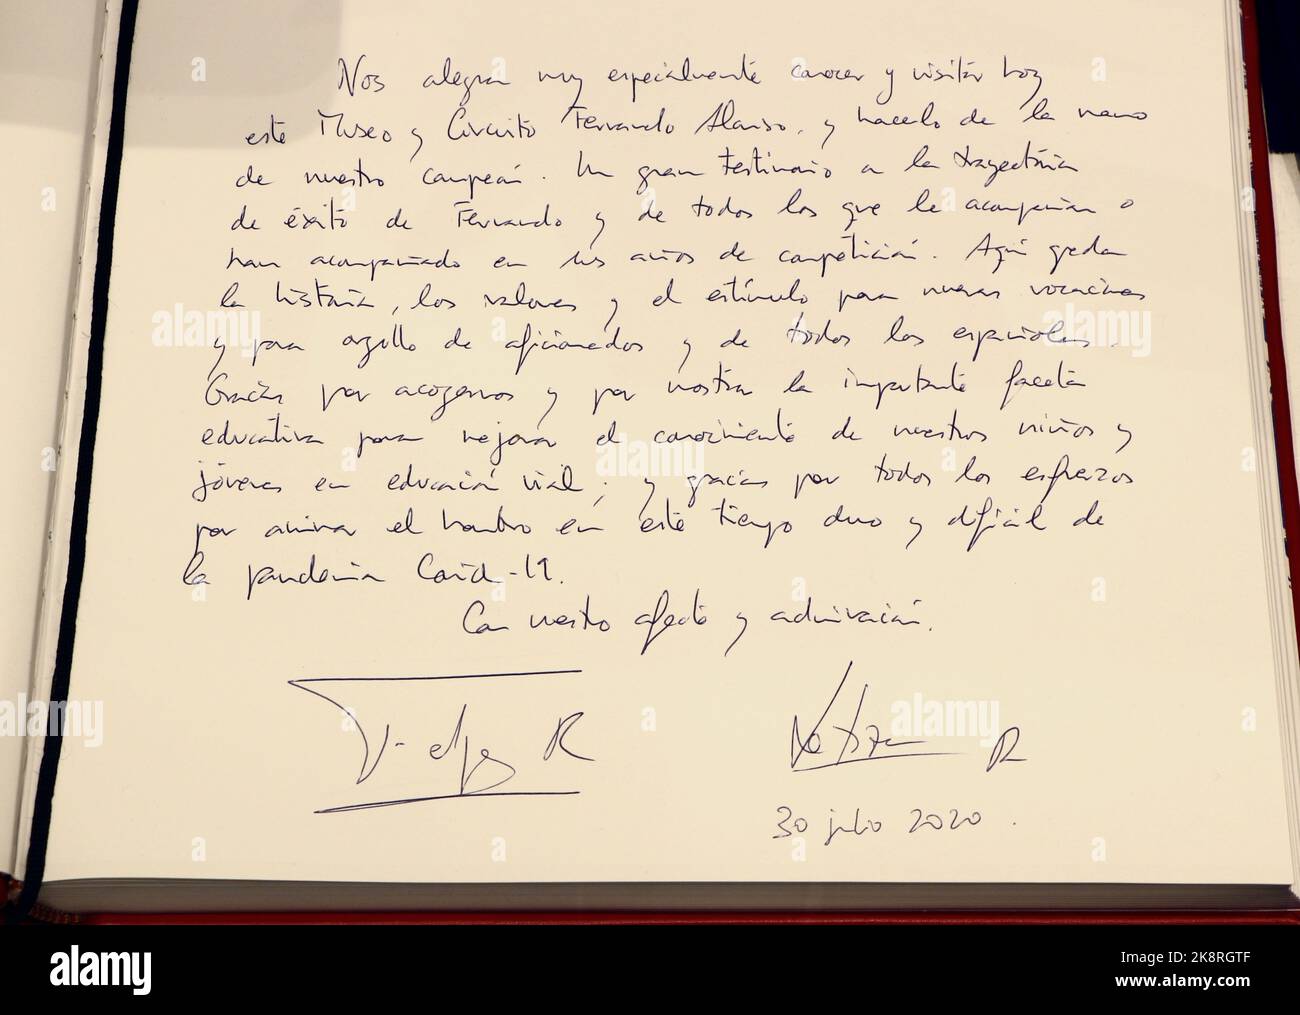 Nos alegra muy especialmente conocer y visitar hoy
este Museo y Circuito Fernando Alonso, y hacerlo de la mano
de nuestro campeón. Un gran testimonio a la trayectoria
de éxito de Fernando y de todos los que le acompañan o
han acompañado en sus años de competición. Aquí quedan
la historia, los valores y el estímulo para nuevas vocaciones
y para orgullo de aficionados y de todos los españoles.
Gracias por acogernos y por mostrar la importante faceta
educativa para mejorar el conocimiento de nuestros niños y
jóvenes en educación vial; y gracias por todos los esfuerzos
por animar el hombro en este tiempo duro y difícil de
la pandemia Covid-19.
Con nuestro afecto y admiración.
Felipe R
Letizia R
30 julio 2020.
alamy
Image ID: 2K8RGTF
www.alamy.com